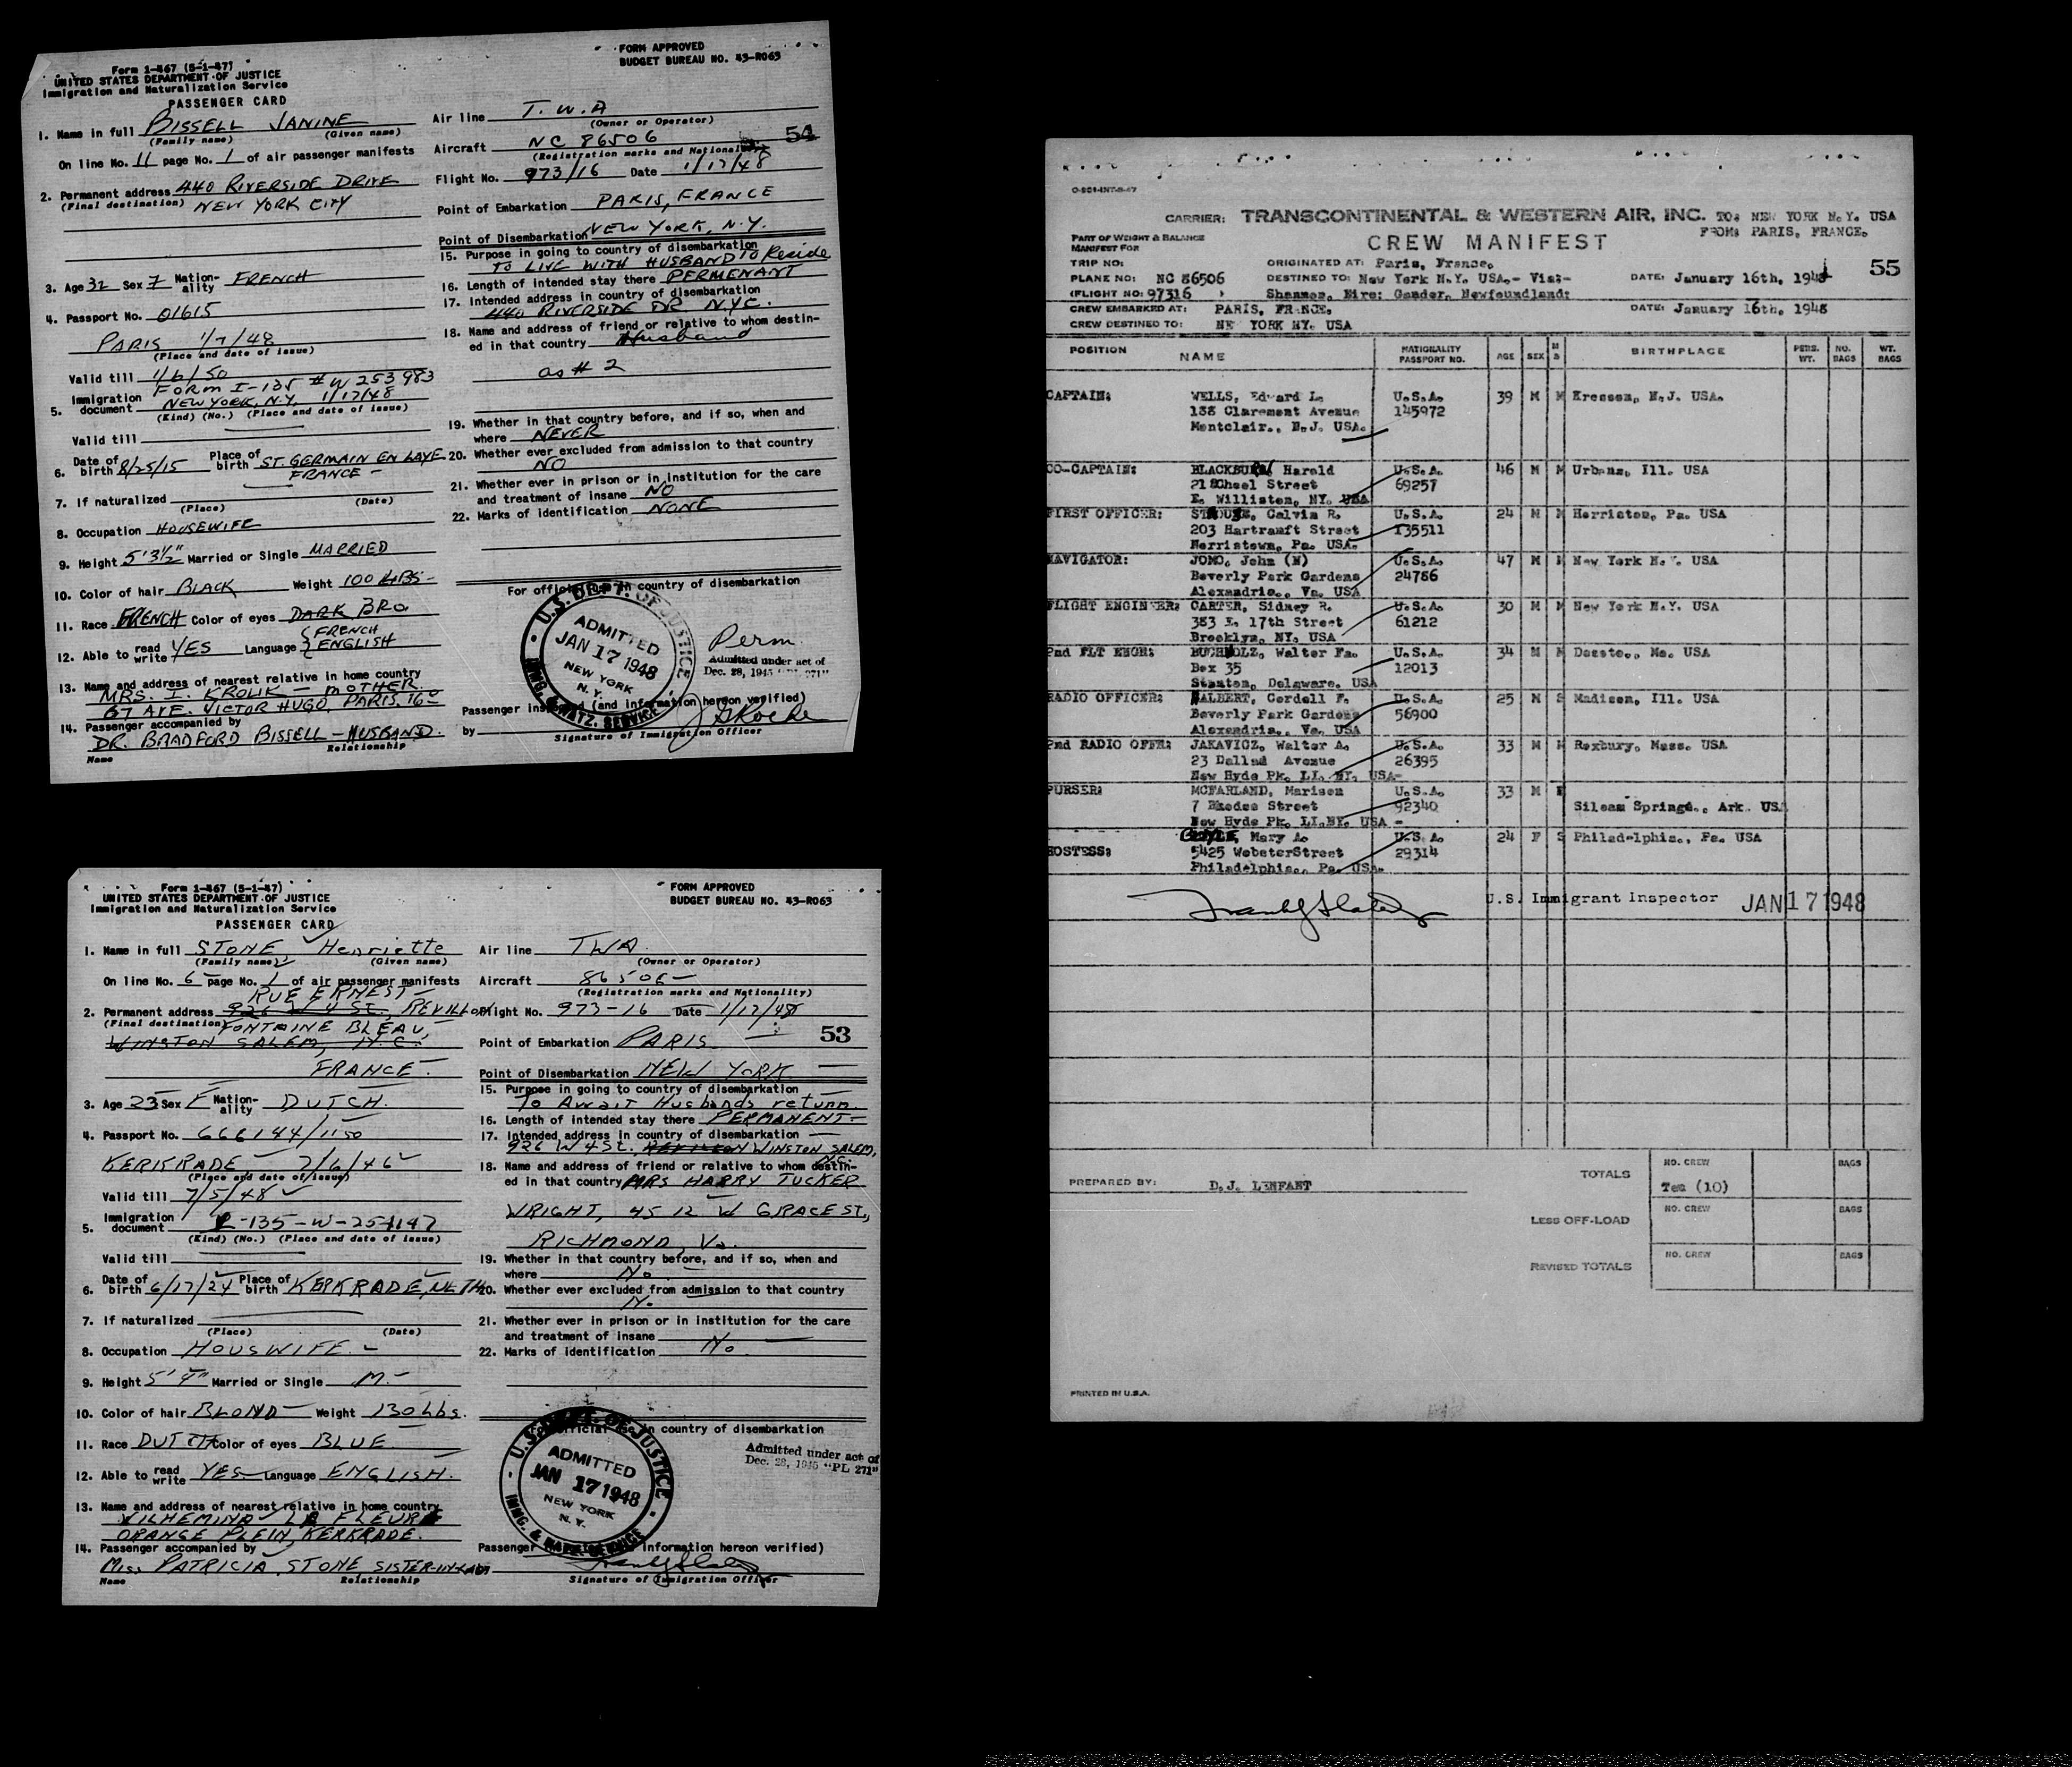 Form 1-467 (5-1-47)
UNITED STATES DEPARTMENT OF JUSTICE
Immigration and Naturalization Service
PASSENGER CARD
FORM APPROVED
BUDGET BUREAU NO. 43-R063
1. Name in full BISSELL JANINE
(Family name) (Given name)
On line No. 11 page No. 1 of air passenger manifests
2. Permanent address 440 RIVERSIDE DRIVE
(Final destination) NEW YORK CITY
3. Age 32 Sex F Nation-ality FRENCH
4. Passport No. 01615
PARIS 1/7/48
(Place and date of issue)
Valid till 1/6/50
FORM I-135 #W 253983
5. Immigration document NEW YORK, N.Y. 1/17/48
(Kind) (No.) (Place and date of issue)
Valid till
6. Date of birth 8/25/15 Place of birth ST. GERMAIN EN LAYE
FRANCE -
7. If naturalized
(Place) (Date)
8. Occupation HOUSEWIFE
9. Height 5'3½" Married or Single MARRIED
10. Color of hair BLACK Weight 100 LBS-
11. Race FRENCH Color of eyes DARK BRO
12. Able to read write YES Language { FRENCH
ENGLISH
13. Name and address of nearest relative in home country
MRS. I. KROLIK - MOTHER.
67 AVE. VICTOR HUGO, PARIS. 16e
14. Passenger accompanied by
DR. BRADFORD BISSELL - HUSBAND.
Name Relationship
Air line T.W.A
(Owner or Operator)
54
Aircraft NC 86506
(Registration marks and Nationality)
Flight No. 973/16 Date 1/17/48
Point of Embarkation PARIS, FRANCE
Point of Disembarkation NEW YORK, N.Y.
15. Purpose in going to country of disembarkation
TO LIVE WITH HUSBAND To Reside
16. Length of intended stay there PERMENANT
17. Intended address in country of disembarkation
440 RIVERSIDE DR. N.Y.C.
18. Name and address of friend or relative to whom destin-
ed in that country Husband
as # 2
19. Whether in that country before, and if so, when and
where NEVER
20. Whether ever excluded from admission to that country
NO
21. Whether ever in prison or in institution for the care
and treatment of insane NO
22. Marks of identification NONE
For official use in country of disembarkation
U.S. DEPT. OF JUSTICE
ADMITTED
JAN 17 1948
NEW YORK
N.Y.
IMMG. & NATZ. SERVICE
Perm.
Admitted under act of
Dec. 28, 1945
Passenger (and information hereon verified)
by
Signature of Immigration Officer
Form 1-467 (5-1-47)
UNITED STATES DEPARTMENT OF JUSTICE
Immigration and Naturalization Service
PASSENGER CARD
FORM APPROVED
BUDGET BUREAU NO. 43-R063
1. Name in full STONE Henriette
(Family name) (Given name)
On line No. 6 page No. 1 of air passenger manifests
RUE ERNEST
2. Permanent address 926 W 4 St., REVILLON
(Final destination) FONTAINE BLEAU,
WINSTON SALEM, N.C.
FRANCE -
3. Age 23 Sex F Nation-ality DUTCH.
4. Passport No. 666144/1150
KERKRADE 7/6/46
(Place and date of issue)
Valid till 7/5/48
5. Immigration document I-135-W-254147
(Kind) (No.) (Place and date of issue)
Valid till
6. Date of birth 6/17/24 Place of birth KERKRADE, NETH
7. If naturalized
(Place) (Date)
8. Occupation HOUSWIFE -
9. Height 5'4" Married or Single M.-
10. Color of hair BLOND Weight 130 Lbs.
11. Race DUTCH Color of eyes BLUE
12. Able to read write YES Language ENGLISH.
13. Name and address of nearest relative in home country
VILHEMINA LA FLEUR
ORANGE PLEIN, KERKRADE.
14. Passenger accompanied by
Miss PATRICIA STONE SISTER-IN-LAW
Name Relationship
Air line TWA
(Owner or Operator)
Aircraft 86506
(Registration marks and Nationality)
Flight No. 973-16 Date 1/17/48
53
Point of Embarkation PARIS
Point of Disembarkation NEW YORK
15. Purpose in going to country of disembarkation
To Await Husbands return
16. Length of intended stay there PERMANENT
17. Intended address in country of disembarkation
926 W 4 St. WINSTON SALEM, N.C.
18. Name and address of friend or relative to whom destin-
ed in that country MRS HARRY TUCKER
WRIGHT, 4512 W GRACE ST.,
RICHMOND, Va.
19. Whether in that country before, and if so, when and
where No
20. Whether ever excluded from admission to that country
No
21. Whether ever in prison or in institution for the care
and treatment of insane No
22. Marks of identification No
For official use in country of disembarkation
U.S. DEPT. OF JUSTICE
ADMITTED
JAN 17 1948
NEW YORK
N.Y.
IMMG. & NATZ. SERVICE
Admitted under act of
Dec. 28, 1945 "PL 271"
Passenger information hereon verified)
Signature of Immigration Officer
O-801-INT-8-47
CARRIER: TRANSCONTINENTAL & WESTERN AIR, INC. TO: NEW YORK N.Y. USA
FROM: PARIS, FRANCE.
PART OF WEIGHT & BALANCE
MANIFEST FOR
CREW MANIFEST
TRIP NO: ORIGINATED AT: Paris, France.
PLANE NO: NC 86506 DESTINED TO: New York N.Y. USA.- Via:- DATE: January 16th, 1948 55
(FLIGHT NO: 97316 ) Shannon, Eire: Gander, Newfoundland:
CREW EMBARKED AT: PARIS, FRANCE. DATE: January 16th, 1948
CREW DESTINED TO: NE YORK NY. USA
POSITION NAME NATIONALITY PASSPORT NO. AGE SEX M S BIRTHPLACE PERS. WT. NO. BAGS WT. BAGS
CAPTAIN: WELLS, Edward L. U.S.A. 39 M M Kresson, N.J. USA.
138 Claremont Avenue 145972
Montclair., N.J. USA.
CO-CAPTAIN: BLACKBURN Harold U.S.A. 46 M M Urbana, Ill. USA
21 School Street 69257
E. Williston, NY. USA
FIRST OFFICER: STROUSE, Calvin R. U.S.A. 24 M M Norriston, Pa. USA
203 Hartranft Street 135511
Norristown, Pa. USA.
NAVIGATOR: JOMO, John (N) U.S.A. 47 M M New York N.Y. USA
Beverly Park Gardens 24786
Alexandria., Va. USA
FLIGHT ENGINEER: CARTER, Sidney R. U.S.A. 30 M M New York N.Y. USA
383 E. 17th Street 61212
Brooklyn, NY, USA
2nd FLT ENGR: BUCHHOLZ, Walter Fa. U.S.A. 34 M M USA
Box 35 12013
Stanton, Delaware. USA
RADIO OFFICER: Cordell F. U.S.A. 25 M S Madison, Ill. USA
Beverly Park Gardens 56900
Alexandria., Va. USA
2nd RADIO OFFR: JAKAVICZ, Walter A. U.S.A. 33 M M Roxbury, Mass. USA
23 Avenue 26395
New Hyde Pk. LI. NY. USA-
PURSER: MCFARLAND, Marison U.S.A. 33 M
7 Rhodes Street 92340 Siloam Springs., Ark. USA
New Hyde Pk. LI.NY. USA -
Mary A. U.S.A. 24 F S Philadelphia., Pa. USA
HOSTESS: 5425 WebsterStreet 29314
Philadelphia., Pa. USA.
U.S. Immigrant Inspector JAN 17 1948
PREPARED BY: D.J. LENFANT
TOTALS NO. CREW BAGS
Ten (10)
LESS OFF-LOAD NO. CREW BAGS
REVISED TOTALS NO. CREW BAGS
PRINTED IN U.S.A.